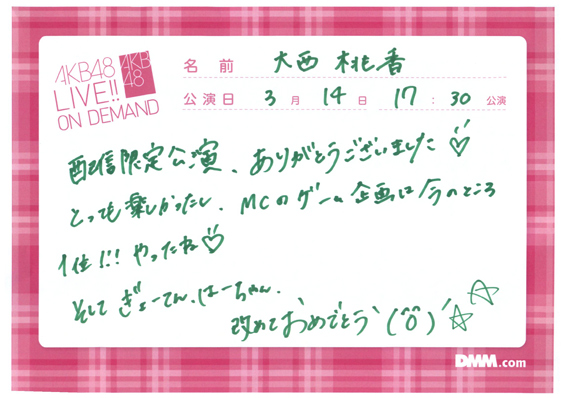 AKB48
LIVE!!
ON DEMAND
AKB
48
名前 大西桃香
公演日 3月14日 17:30 公演
配信限定公演、ありがとうございました♡
とっても楽しかったし、MCのゲーム企画は今のところ
1位!!! やったね♡
そして ぎょーてん、はーちゃん、
改めておめでとう`(^o^)´☆☆
DMM.com